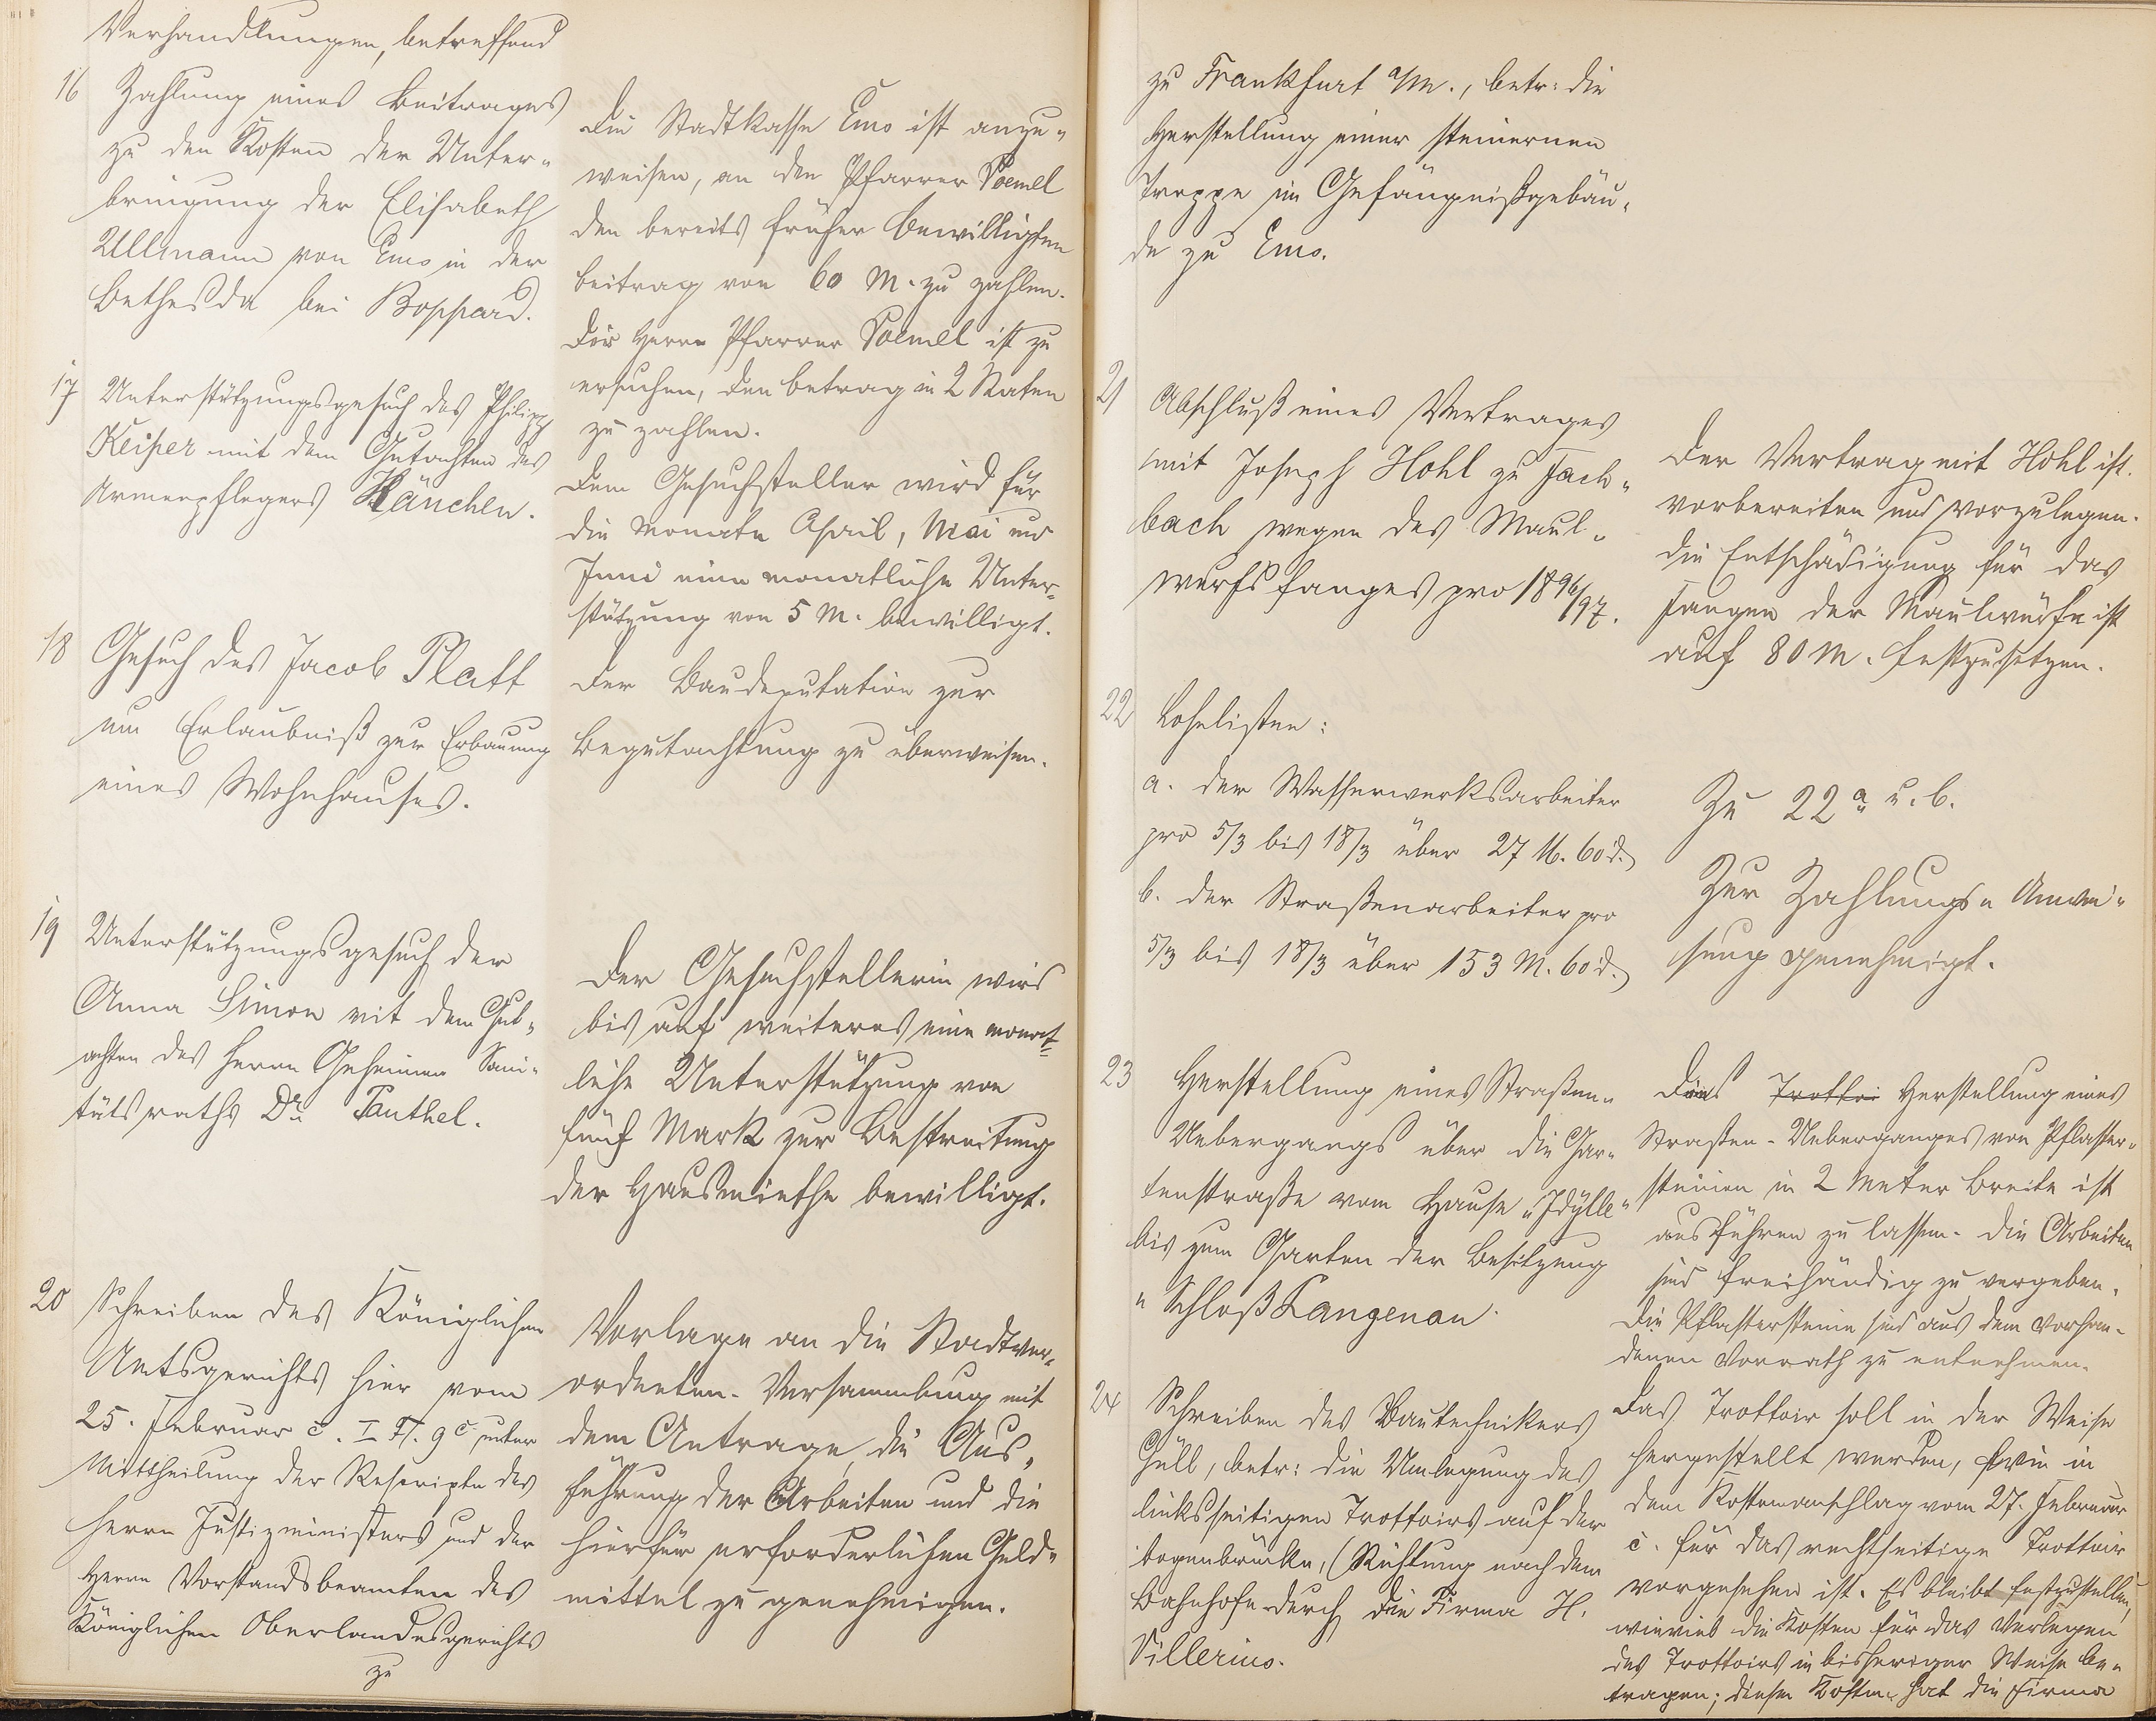 Verhandlungen, betreffend
16 Zahlung eines Beitrages
zu den Kosten der Unter-
bringung der Elisabeth
Ullmann von Ems in der
Bethesda bei Boppard.
Die Stadtkasse Ems ist anzu-
weisen, an den Pfarrer Poemel
den bereits früher bewilligten
Beitrag von 60 M. zu zahlen.
Der Herrn Pfarrer Poemel ist zu
ersuchen, den Betrag in 2 Raten
zu zahlen.
17 Unterstützungsgesuch des Philipp
Keiper mit dem Gutachten des
Armenpflegers Känchen.
Dem Gesuchsteller wird für
die Monate April, Mai und
Juni eine monatliche Unter-
stützung von 5 M. bewilligt.
18 Gesuch des Jacob Platt
um Erlaubniß zur Erbauung
eines Wohnhauses.
Der Baudeputation zur
Begutachtung zu überweisen.
19 Unterstützungsgesuch der
Anna Simon mit dem Gut-
achten des Herrn Geheimen Sani-
tätsraths Dr. Panthel.
Der Gesuchstellerin wird
bis auf weiteres eine monat-
liche Unterstützung von
fünf Mark zur Bestreitung
der Hausmiethe bewilligt.
20 Schreiben des Königlichen
Amtsgerichts hier vom
25. Februar c. I 9c unter
Mittheilung der Rescripte des
Herrn Justizministers und der
Herrn Vorstandsbeamten des
Königlichen Oberlandesgerichts
zu
Vorlage an die Stadtver-
ordneten-Versammlung mit
dem Antrage, die Aus-
führung der Arbeiten und die
hierfür erforderlichen Geld-
mittel zu genehmigen.
zu Frankfurt a/M., betr: die
Herstellung einer steinernen
Treppe im Gefängnißgebäu-
de zu Ems.
21 Abschluß eines Vertrages
mit Joseph Hohl zu Fach-
bach wegen des Maul-
wurfsfanges pro 1896/97.
Der Vertrag mit Hohl ist
vorbereiten und vorzulegen.
Die Entschädigung für das
Fangen der Maulwürfe ist
auf 80 M. festzusetzen.
22 Lohnlisten:
a. der Wasserwerksarbeiter
pro 5/3 bis 18/3 über 27 M. 60 d.
b. der Straßenarbeiter pro
5/3 bis 18/3 über 153 M. 60 d.
Zu 22 a u. b.
Zur Zahlungs-Anwei-
sung genehmigt.
23 Herstellung eines Straßen-
Uebergangs über die Gar-
tenstraße vom Hause "Idylle"
bis zum Garten der Besitzung
"Schloß Langenau.
Die Trottoi Herstellung eines
Straßen-Ueberganges von Pflaster-
steinen in 2 Meter Breite ist
ausführen zu lassen. Die Arbeiten
sind freihändig zu vergeben.
Die Pflastersteine sind aus dem vorhan-
denen Vorrath zu entnehmen.
24 Schreiben des Bautechnikers
Güll, betr: die Umlegung des
linksseitigen Trottoirs auf der
Bogenbrücke, (Richtung nach dem
Bahnhofe durch die Firma H.
Villerius.
Das Trottoir soll in der Weise
hergestellt werden, wie in
dem Kostenanschlag vom 27. Februar
c. für das rechtseitige Trottoir
vorgesehen ist. Es bleibt festzustellen,
wieviel die Kosten für das Verlegen
des Trottoirs in bisheriger Weise be-
tragen; diese Kosten hat die Firma